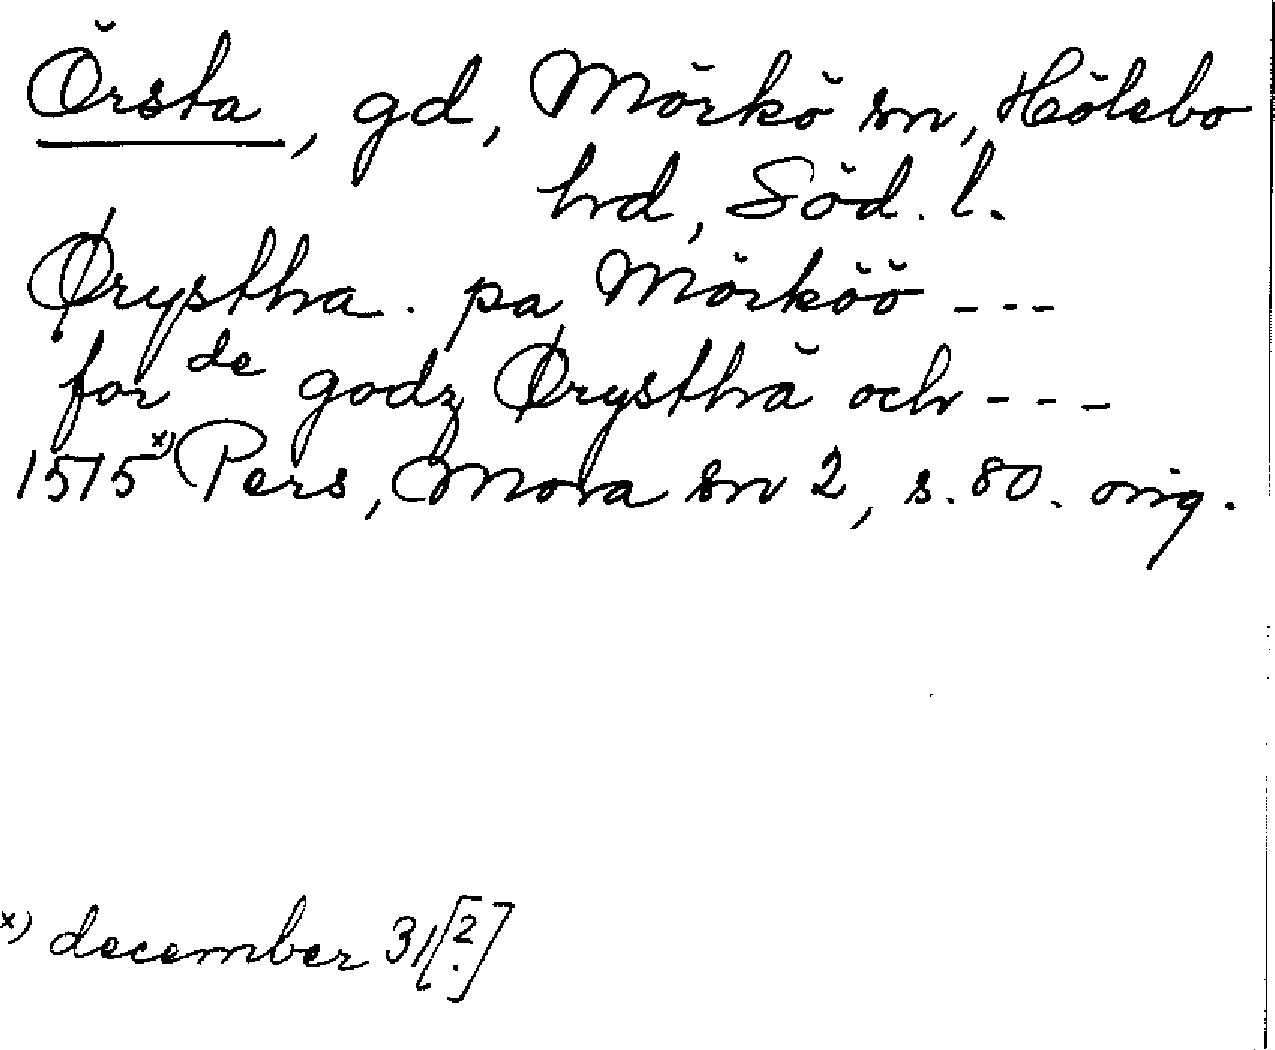 Örsta, gd, Mörkö sn, Hölebo
hrd, Söd. l.
Ørystha. pa Mörköö ---
for de godz Ørysthä och ---
1515 x) Pers, Mora sn 2, s. 80. orig.
x) december 31[?]